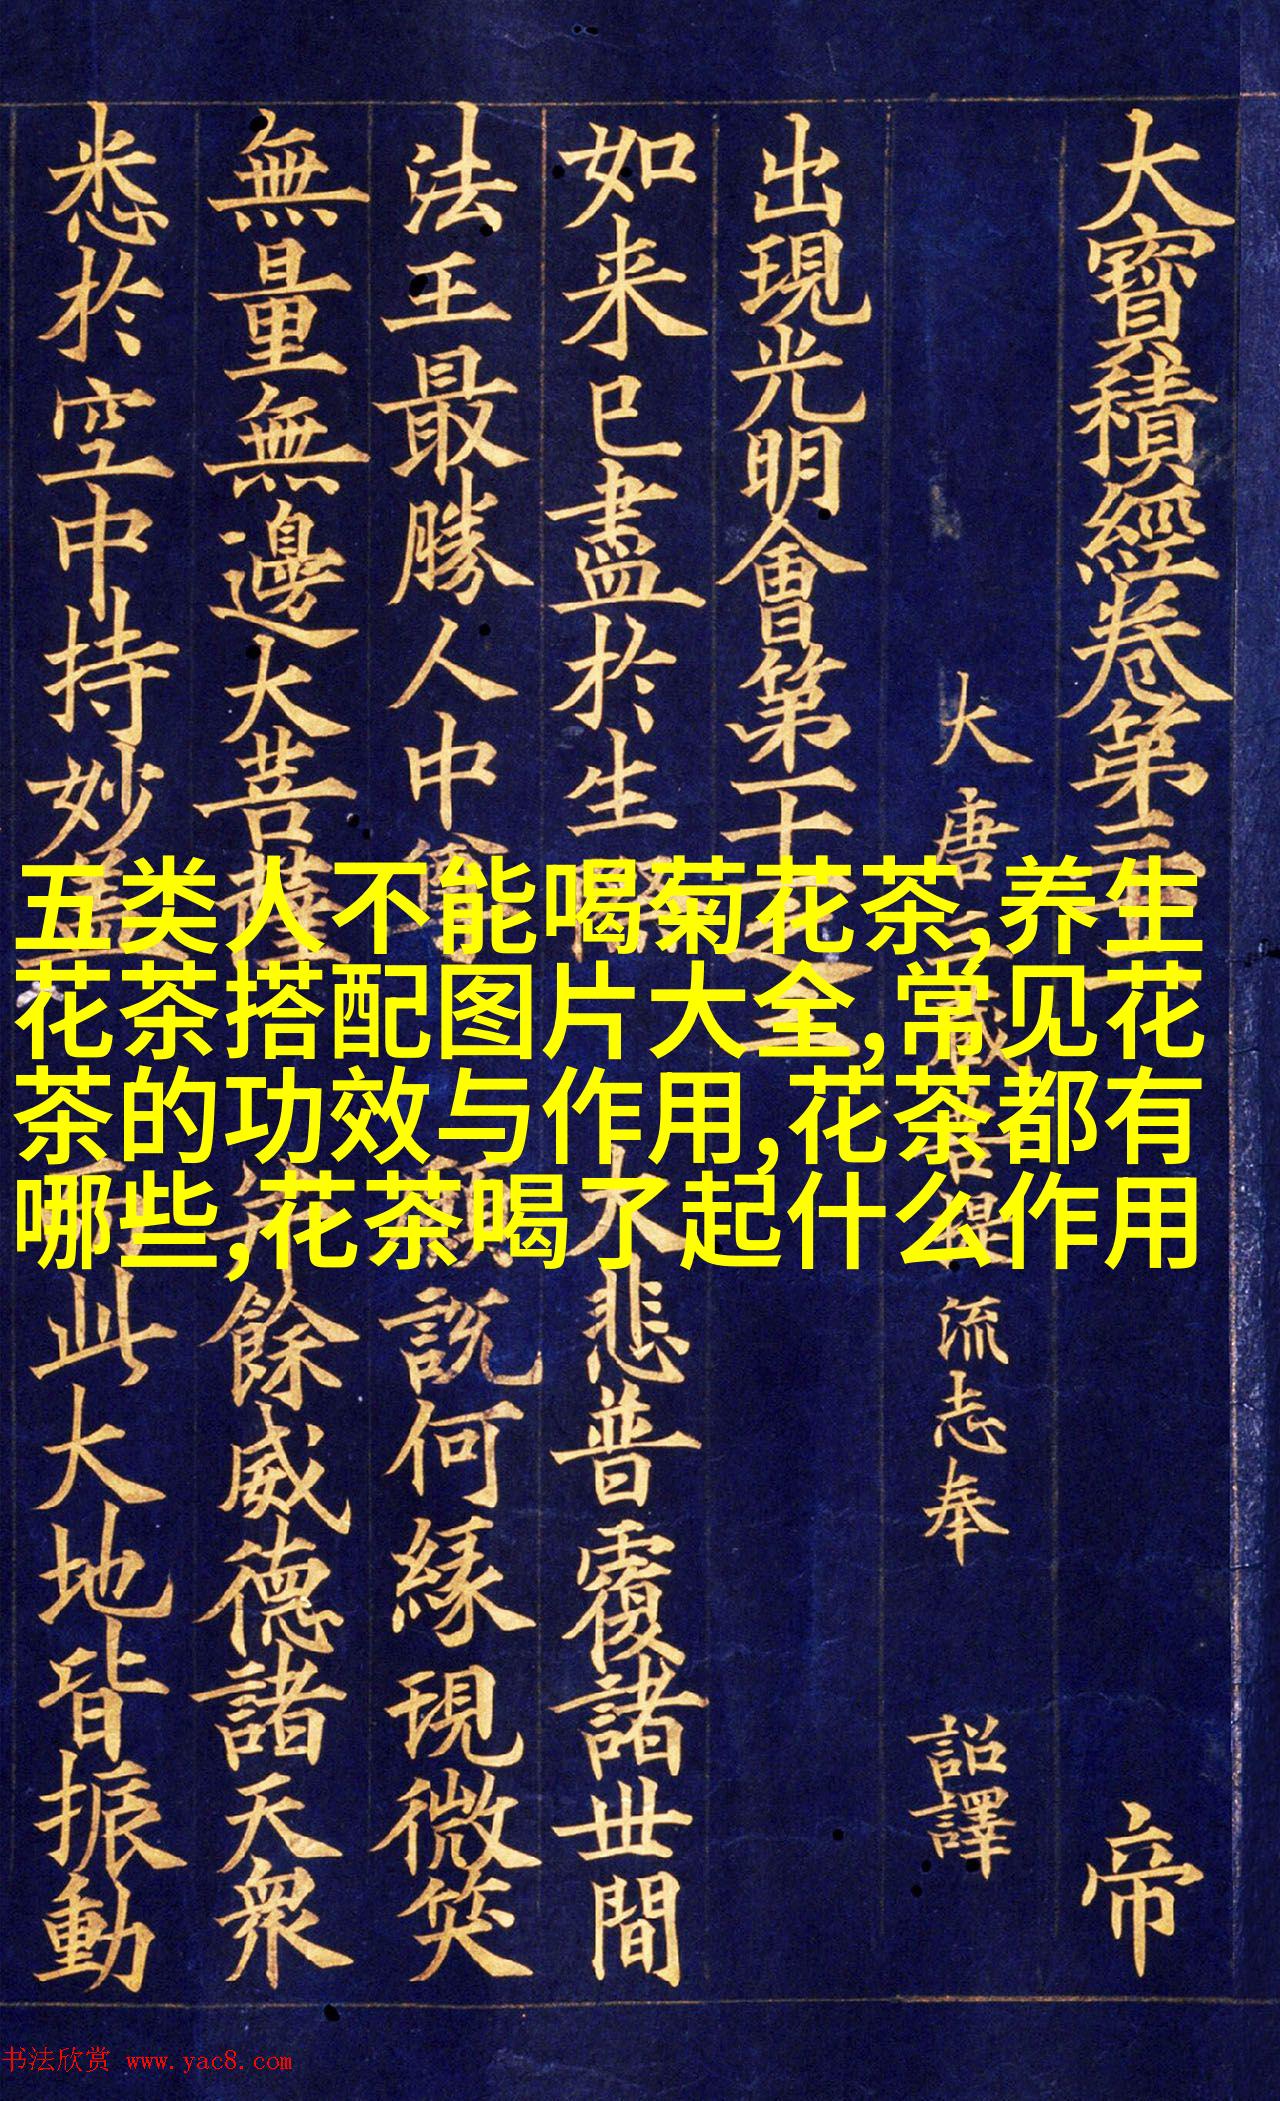 大寶積經卷第三
帝
大唐三藏菩提流志奉
詔譯
出現光明會第十一之三
如来已盡於生 大悲普覆諸世間
法王最勝人中 願説何緣現微笑
無量無邊大菩薩 餘威德諸天衆
悉於空中持妙蓋 此大地皆振動
五类人不能喝菊花茶,养生
花茶搭配图片大全,常见花
茶的功效与作用,花茶都有
哪些,花茶喝了起什么作用
书法欣赏 www.yac8.com